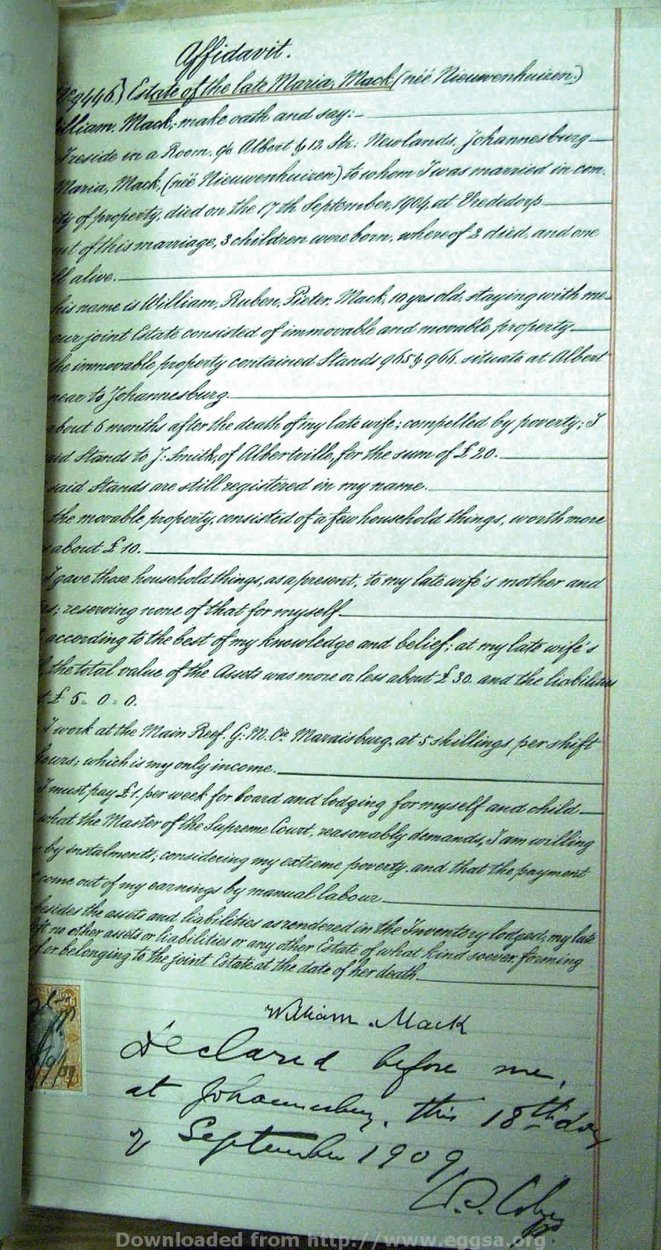 Affidavit.
9446.) Estate of the late Maria, Mack, (née Nieuwenhuizen.)
William, Mack, make oath and say:-
I reside in a Room. c/o Albert & 12 Str: Newlands, Johannesburg
Maria, Mack, (née Nieuwenhuizen) to whom I was married in com.
ity of property, died on the 17th September, 1904, at Vrededorp
ut of this marriage, 3 children were born, whereof 2 died, and one
ll alive.
his name is William, Ruben, Pieter, Mack, 10 yrs old, staying with me.
our joint Estate consisted of immovable and movable property
the immovable property contained Stands 965 & 966. situate at Albert
near to Johannesburg
about 6 months after the death of my late wife; compelled by poverty; I
said Stands to J: Smith, of Albertville, for the sum of £20.
said Stands are still registered in my name.
the movable property, consisted of a few household things, worth more
about £10.
I gave those household things, as a present, to my late wife's mother and
es; reserving none of that for myself
according to the best of my knowledge and belief; at my late wife's
the total value of the Assets was more or less about £30. and the liabilities
t £5. 0. 0.
I work at the Main Reef. G. M. Co. Maraisburg, at 5 shillings per shift
hours; which is my only income.
I must pay £1. per week for board and lodging for myself and child
what the Master of the Supreme Court, reasonably demands, I am willing
by instalments, considering my extreme poverty, and that the payment
come out of my earnings by manual labour
besides the assets and liabilities as rendered in the Inventory lodged, my late
left no other assets or liabilities or any other Estate of what kind soever forming
of or belonging to the joint Estate at the date of her death
William. Mack
Declared before me,
at Johannesburg, this 18th day
of September 1909
Downloaded from http://www.eggsa.org